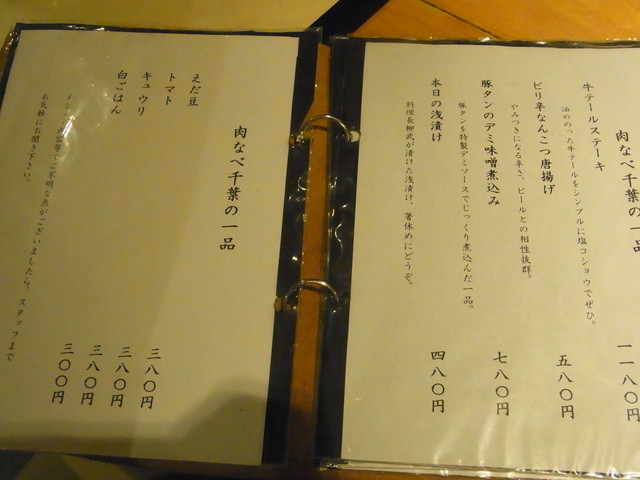 肉なべ千葉の一品
牛テールステーキ 一一八〇円
油ののった牛テールをシンプルに塩コショウでぜひ。
ピリ辛なんこつ唐揚げ 五八〇円
やみつきになる辛さ、ビールとの相性抜群。
豚タンのデミ味噌煮込み 七八〇円
豚タンを特製デミソースでじっくり煮込んだ一品。
本日の浅漬け 四八〇円
料理長柳武が漬けた浅漬け、箸休めにどうぞ。
肉なべ千葉の一品
えだ豆 三八〇円
トマト 三八〇円
キュウリ 三八〇円
白ごはん 三〇〇円
ご不明な点がございましたら、スタッフまで
お気軽にお聞き下さい。